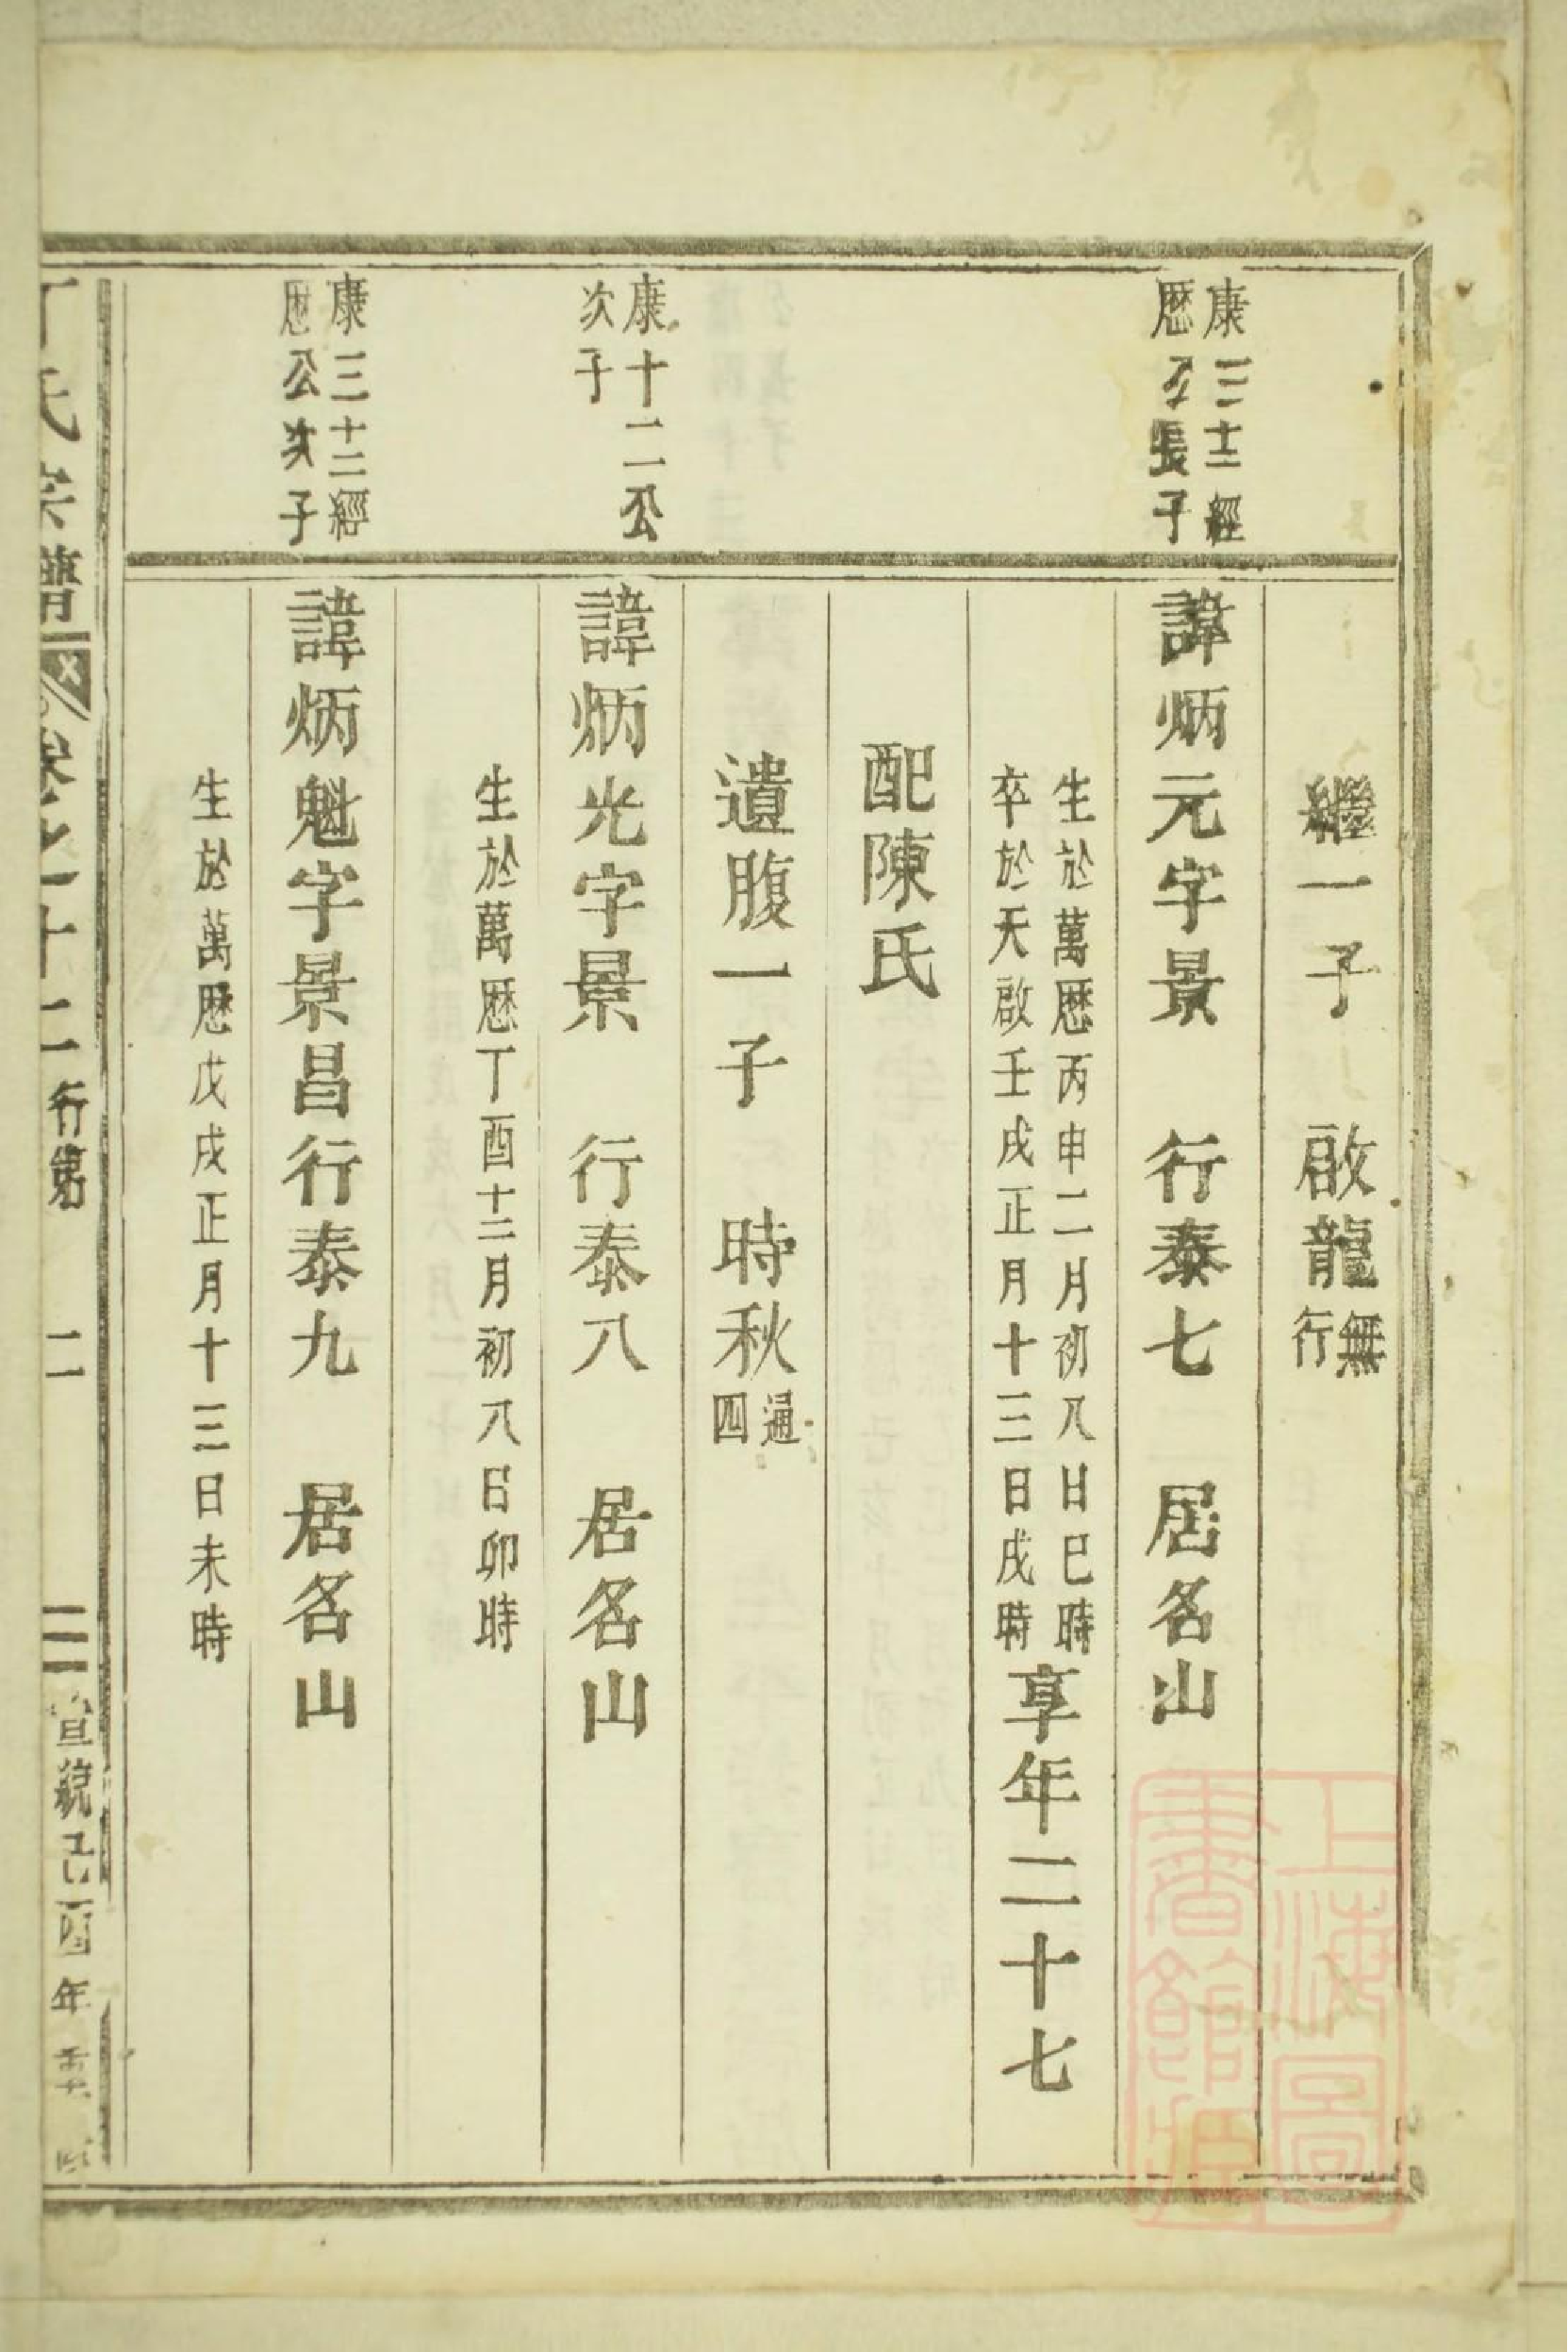 繼一子　啟龍無行
康三十二經
歷公長子
諱炳元字景　行泰七　居名山
生於萬歷丙申二月初八日巳時
卒於天啟壬戌正月十三日戌時
享年二十七
配陳氏
遺腹一子　時秋通四
康十二公
次子
諱炳光字景　行泰八　居名山
生於萬歷丁酉十二月初八日卯時
康三十二經
歷公次子
諱炳魁字景昌行泰九　居名山
生於萬歷戊戌正月十三日未時
丁氏宗譜 卷之十二 行第 二 宣統己酉年重
上海圖書館藏